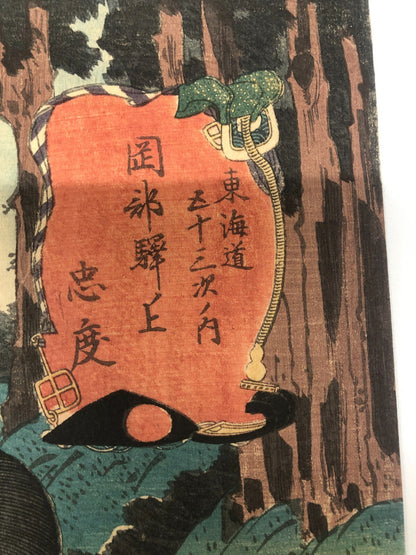 東海道
五十三次ノ内
岡部驛
忠度